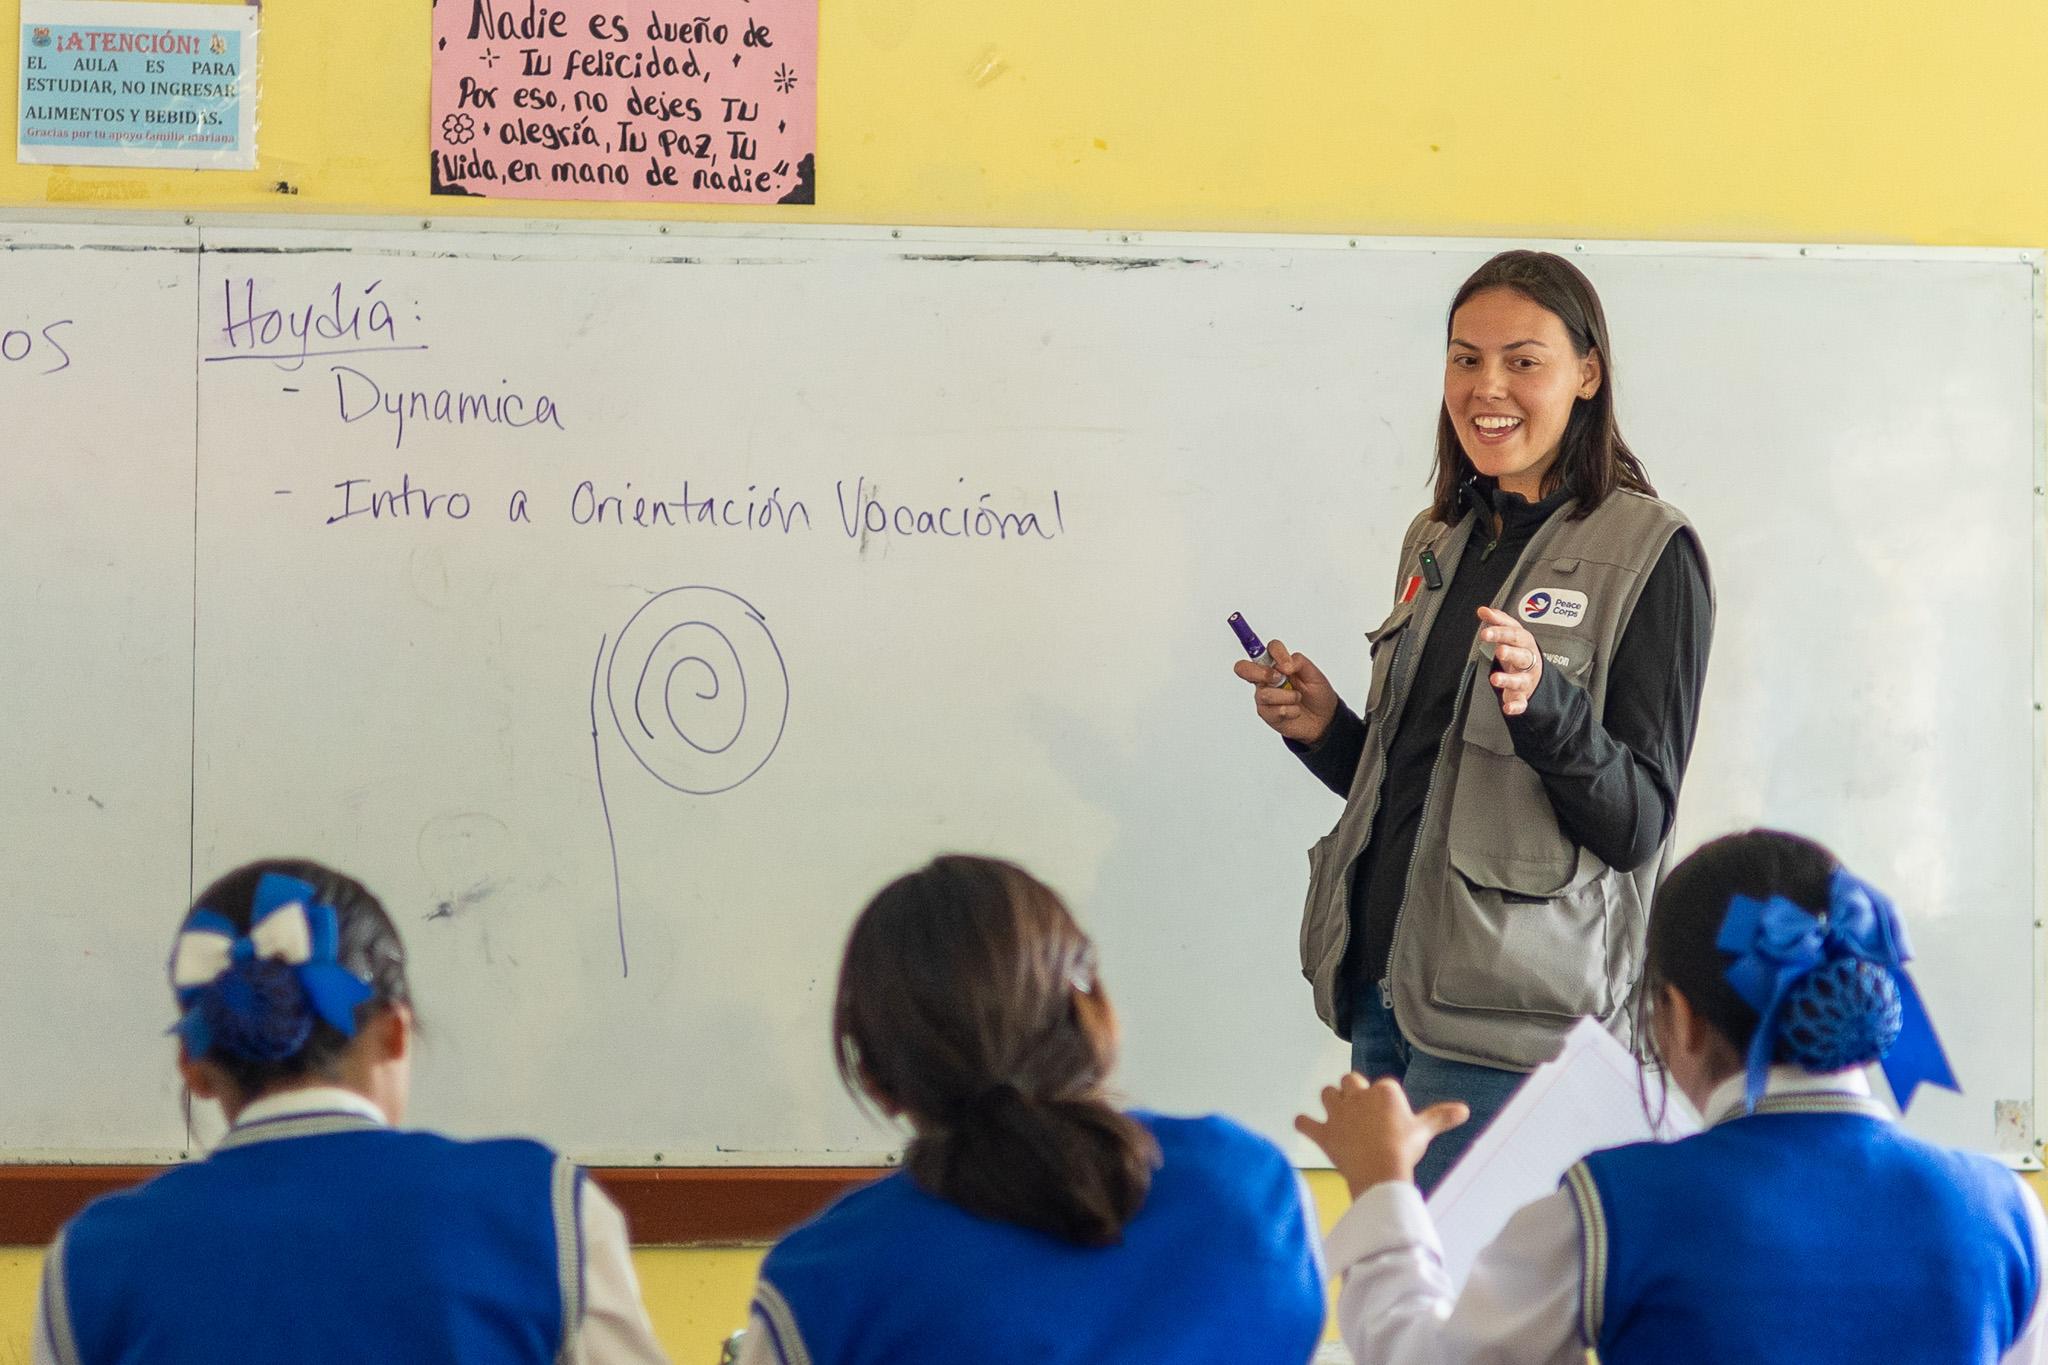 ¡ATENCIÓN!
EL AULA ES PARA
ESTUDIAR, NO INGRESAR
ALIMENTOS Y BEBIDAS.
Gracias por tu apoyo familia mariana
Nadie es dueño de
Tu felicidad,
Por eso, no dejes Tu
alegría, Tu Paz, Tu
Vida, en mano de nadie."
os
Hoy día:
- Dynamica
- Intro a Orientación Vocaciónal
Peace
Corps
wson